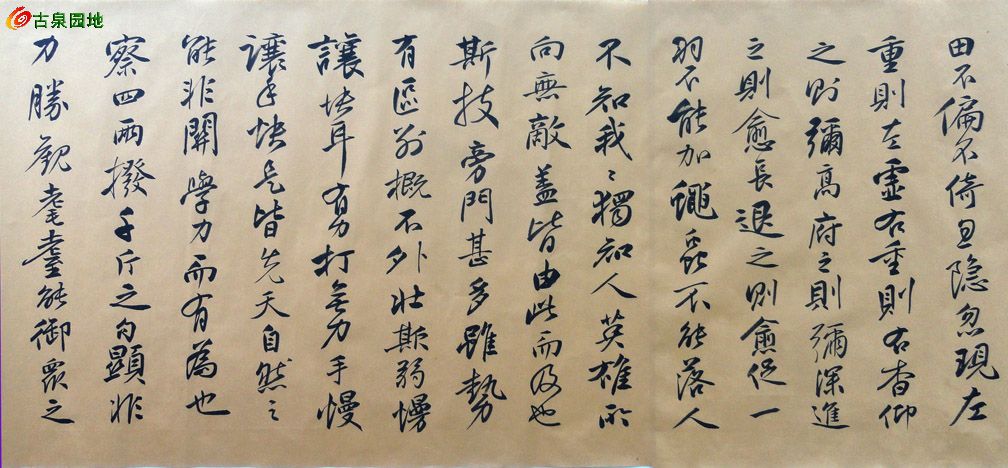 古泉园地
田不偏不倚忽隐忽現左
重則左虛右重則右杳仰
之則彌高府之則彌深進
之則愈長退之則愈促一
羽不能加蠅虫不能落人
不知我〻獨知人英雄所
向無敵蓋皆由此而及也
斯技旁門甚多雖勢
有區别概不外壯欺弱慢
讓快耳有力打無力手慢
讓手快是皆先天自然之
能非關學力而有為也
察四兩撥千斤之句顯非
力勝觀耄耋能御眾之